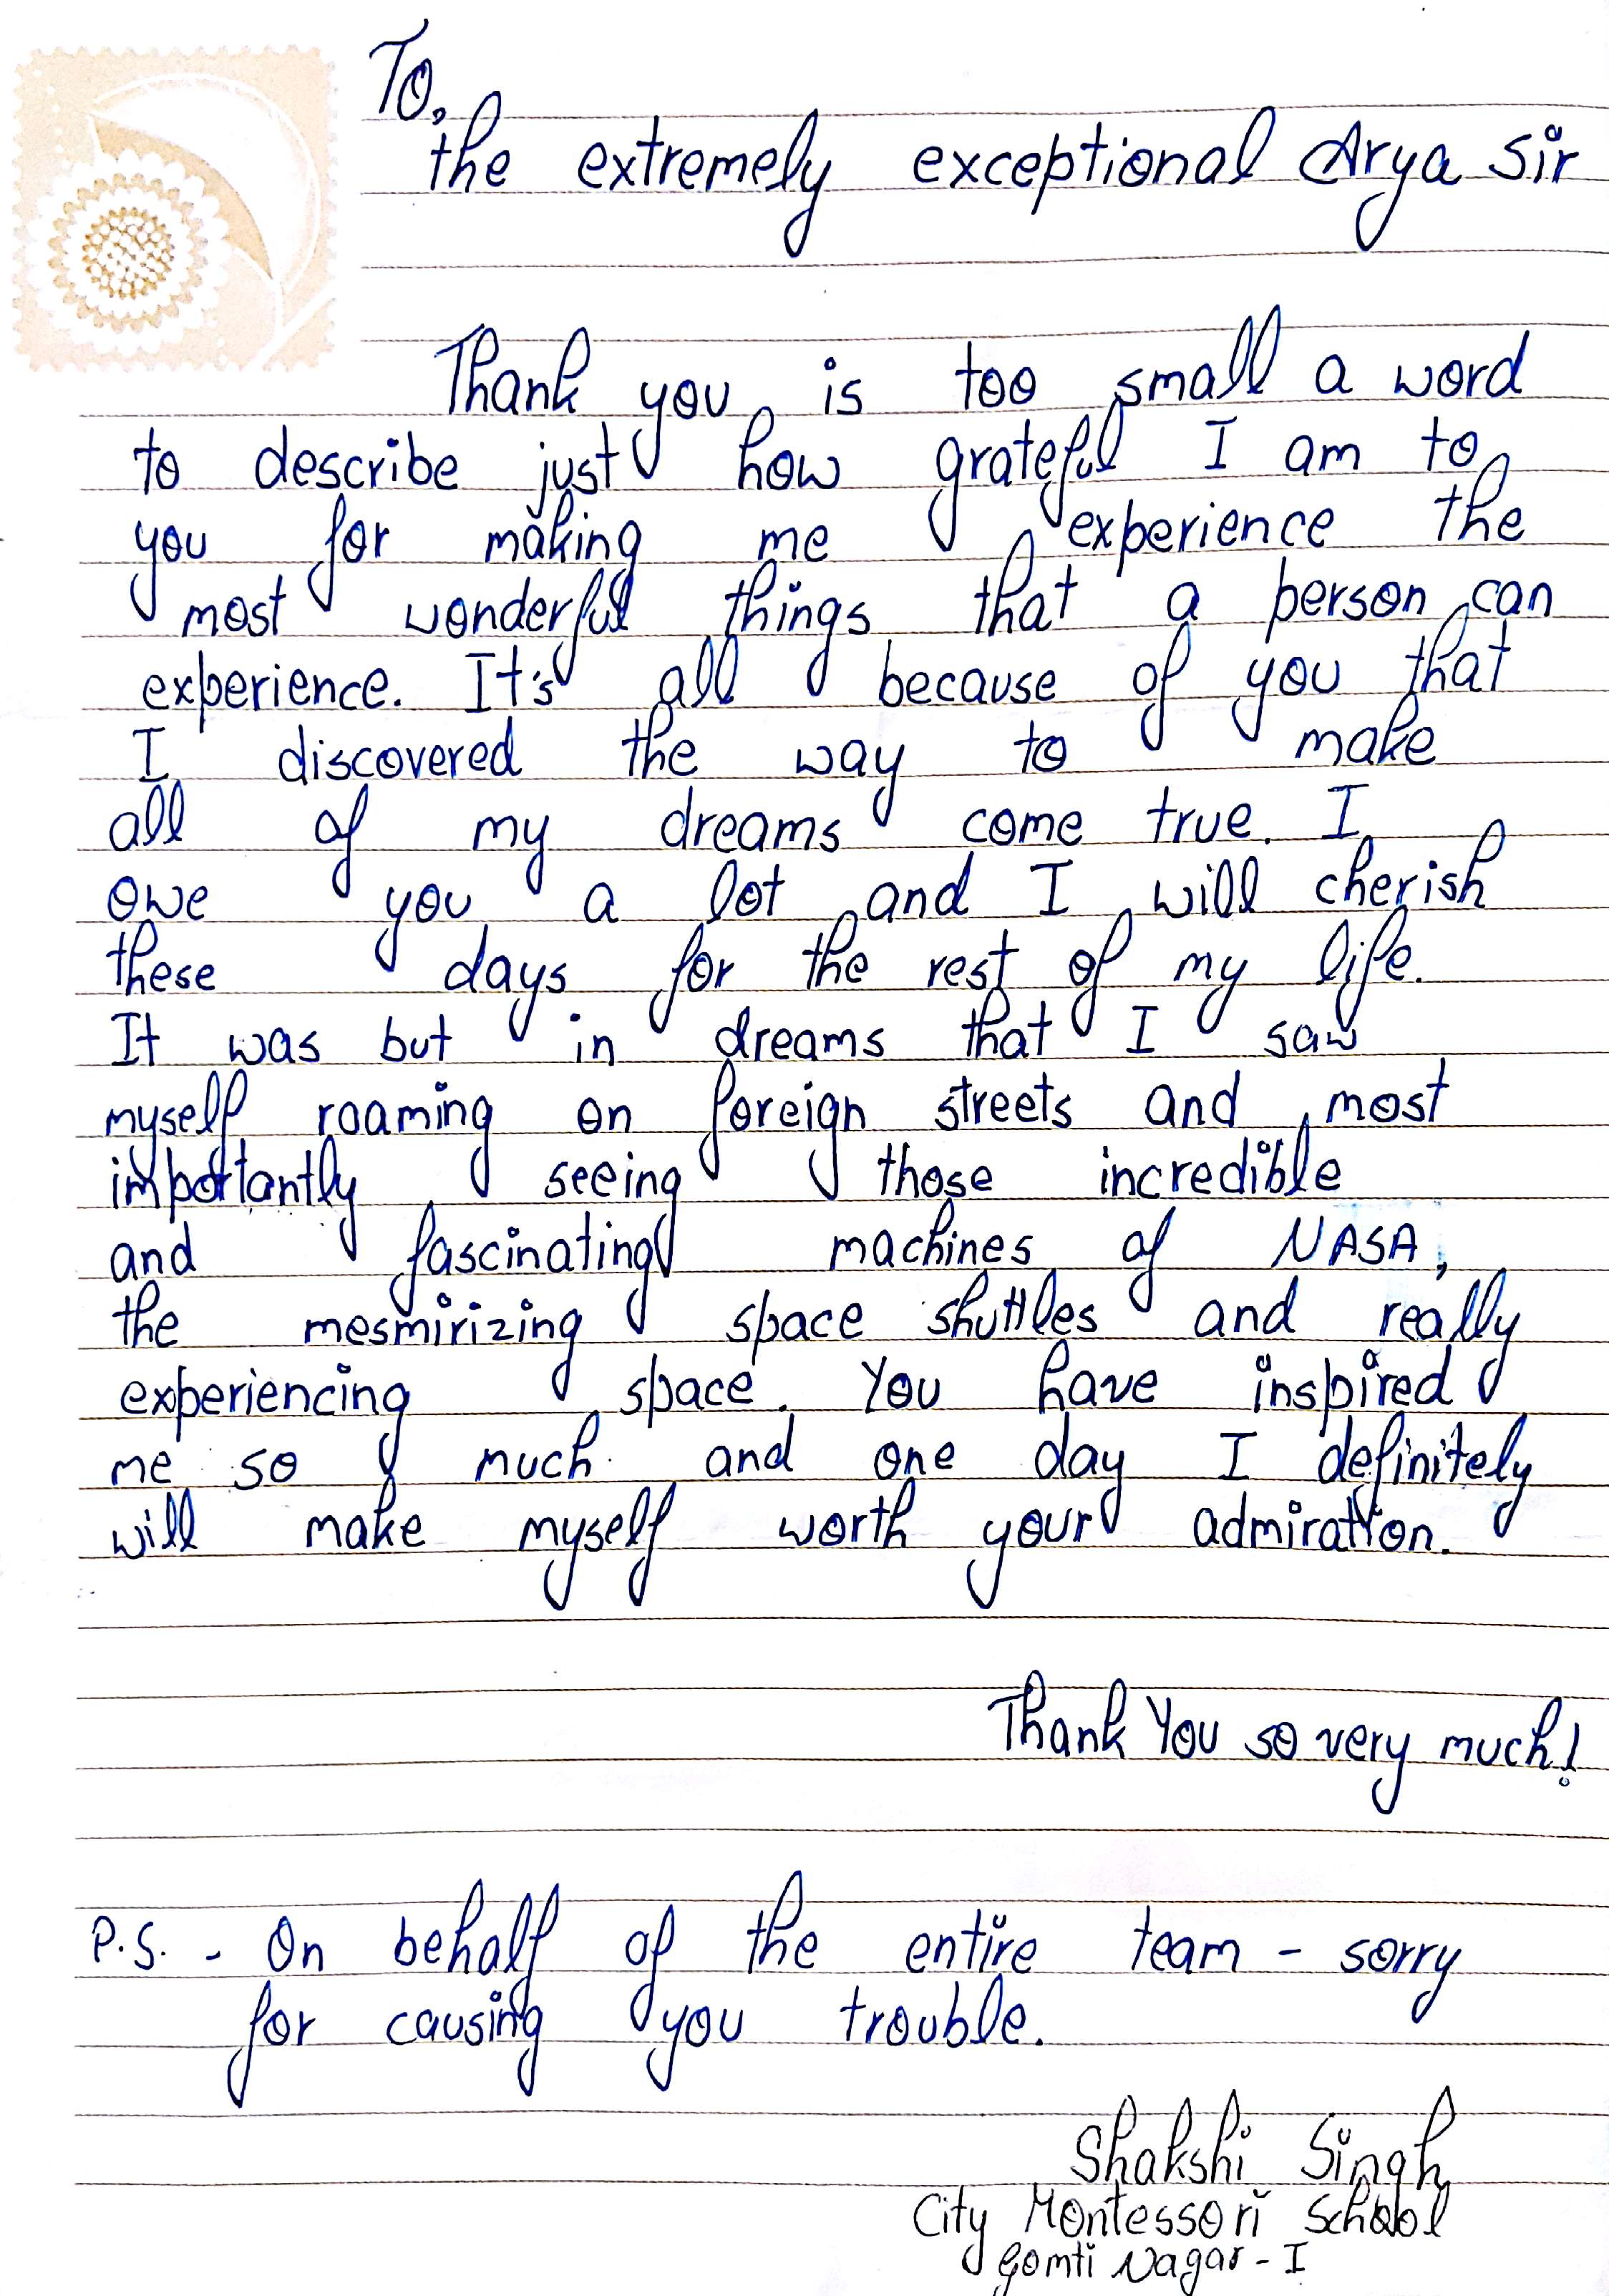 To,
the extremely exceptional Arya Sir
Thank you is too small a word
to describe just how grateful I am to
you for making me experience the
most wonderful things that a person can
experience. It's all because of you that
I discovered the way to make
all of my dreams come true. I
owe you a lot and I will cherish
these days for the rest of my life.
It was but in dreams that I saw
myself roaming on foreign streets and most
importantly seeing those incredible
and fascinating machines of NASA,
the mesmirizing space shuttles and really
experiencing space. You have inspired
me so much and one day I definitely
will make myself worth your admiration.
Thank You so very much!
P.S. - On behalf of the entire team - sorry
for causing you trouble.
Shakshi Singh
City Montessori School
Gomti Nagar - I